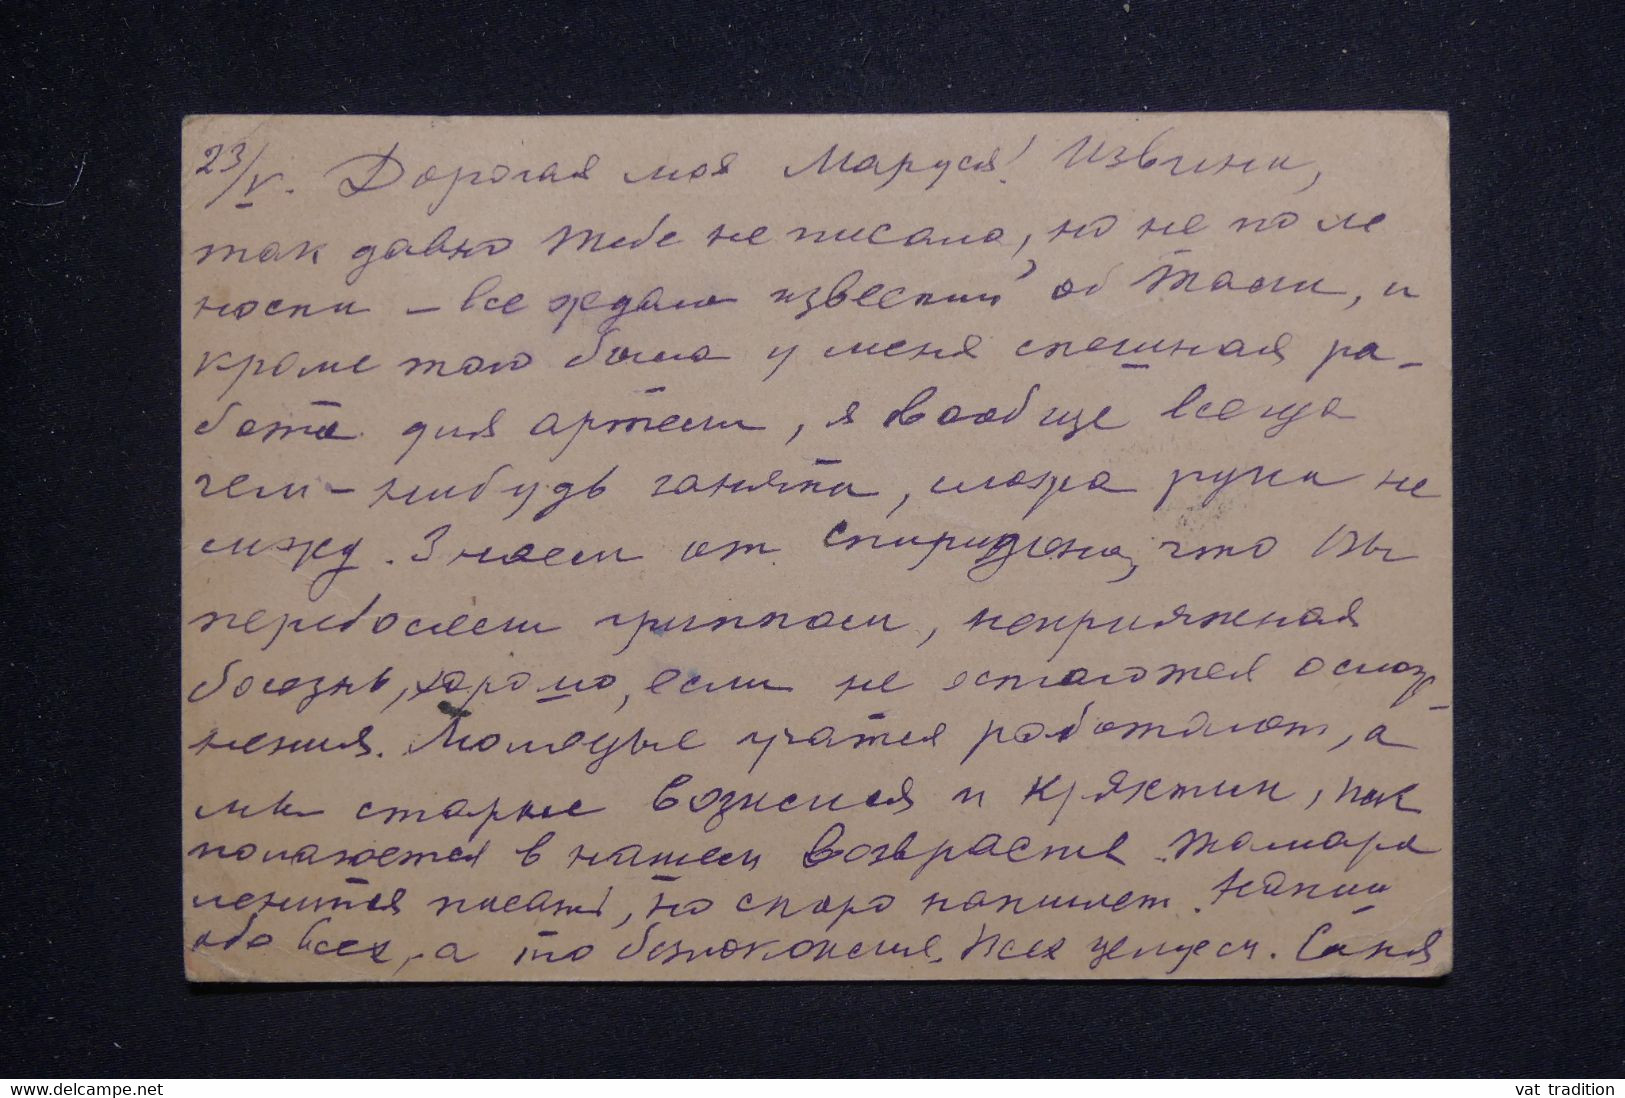 23/V. Дорогая моя Маруся! Извини,
так давно тебе не писала, но не по ле
ности – все ждала известий об Тани, и
кроме того была у меня спешная ра-
бота для артели, я вообще всегда
чем-нибудь занята, сложа руки не
сижу. Знаем от Спиридона, что Вы
переболели гриппом, неприятная
болезнь, хорошо, если не остаются ослож-
нения. Молодые учатся работают, а
мы старые возимся и кряхтим, как
полагается в нашем возрасте. Тамара
ленится писать, но скоро напишет. Напиши
обо всех, а то беспокоимся. Всех целуем. Саня
www.delcampe.net
vat tradition